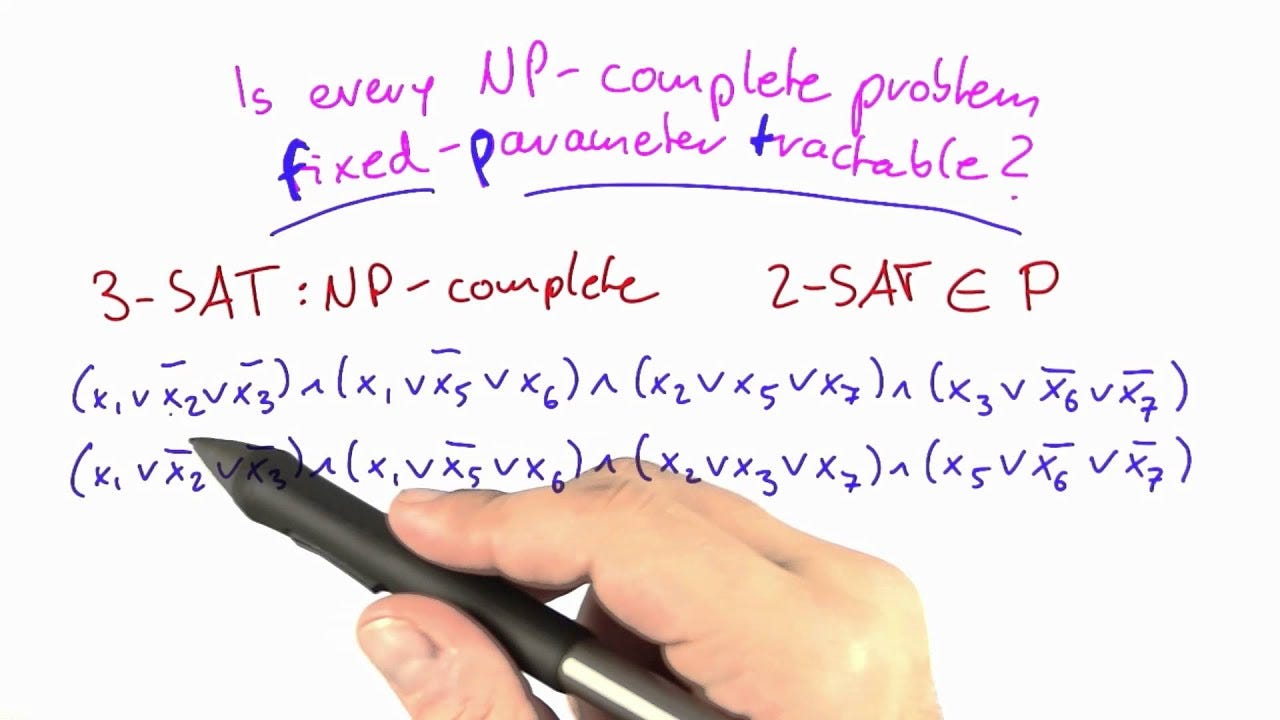 Is every NP-complete problem
fixed-parameter tractable?
3-SAT: NP-complete 2-SAT ∈ P
(x₁ ∨ x̅₂ ∨ x̅₃) ∧ (x₁ ∨ x̅₅ ∨ x₆) ∧ (x₂ ∨ x₅ ∨ x₇) ∧ (x₃ ∨ x̅₆ ∨ x̅₇)
(x₁ ∨ x̅₂ ∨ x̅₃) ∧ (x₁ ∨ x̅₅ ∨ x₆) ∧ (x₂ ∨ x₃ ∨ x₇) ∧ (x₅ ∨ x̅₆ ∨ x̅₇)